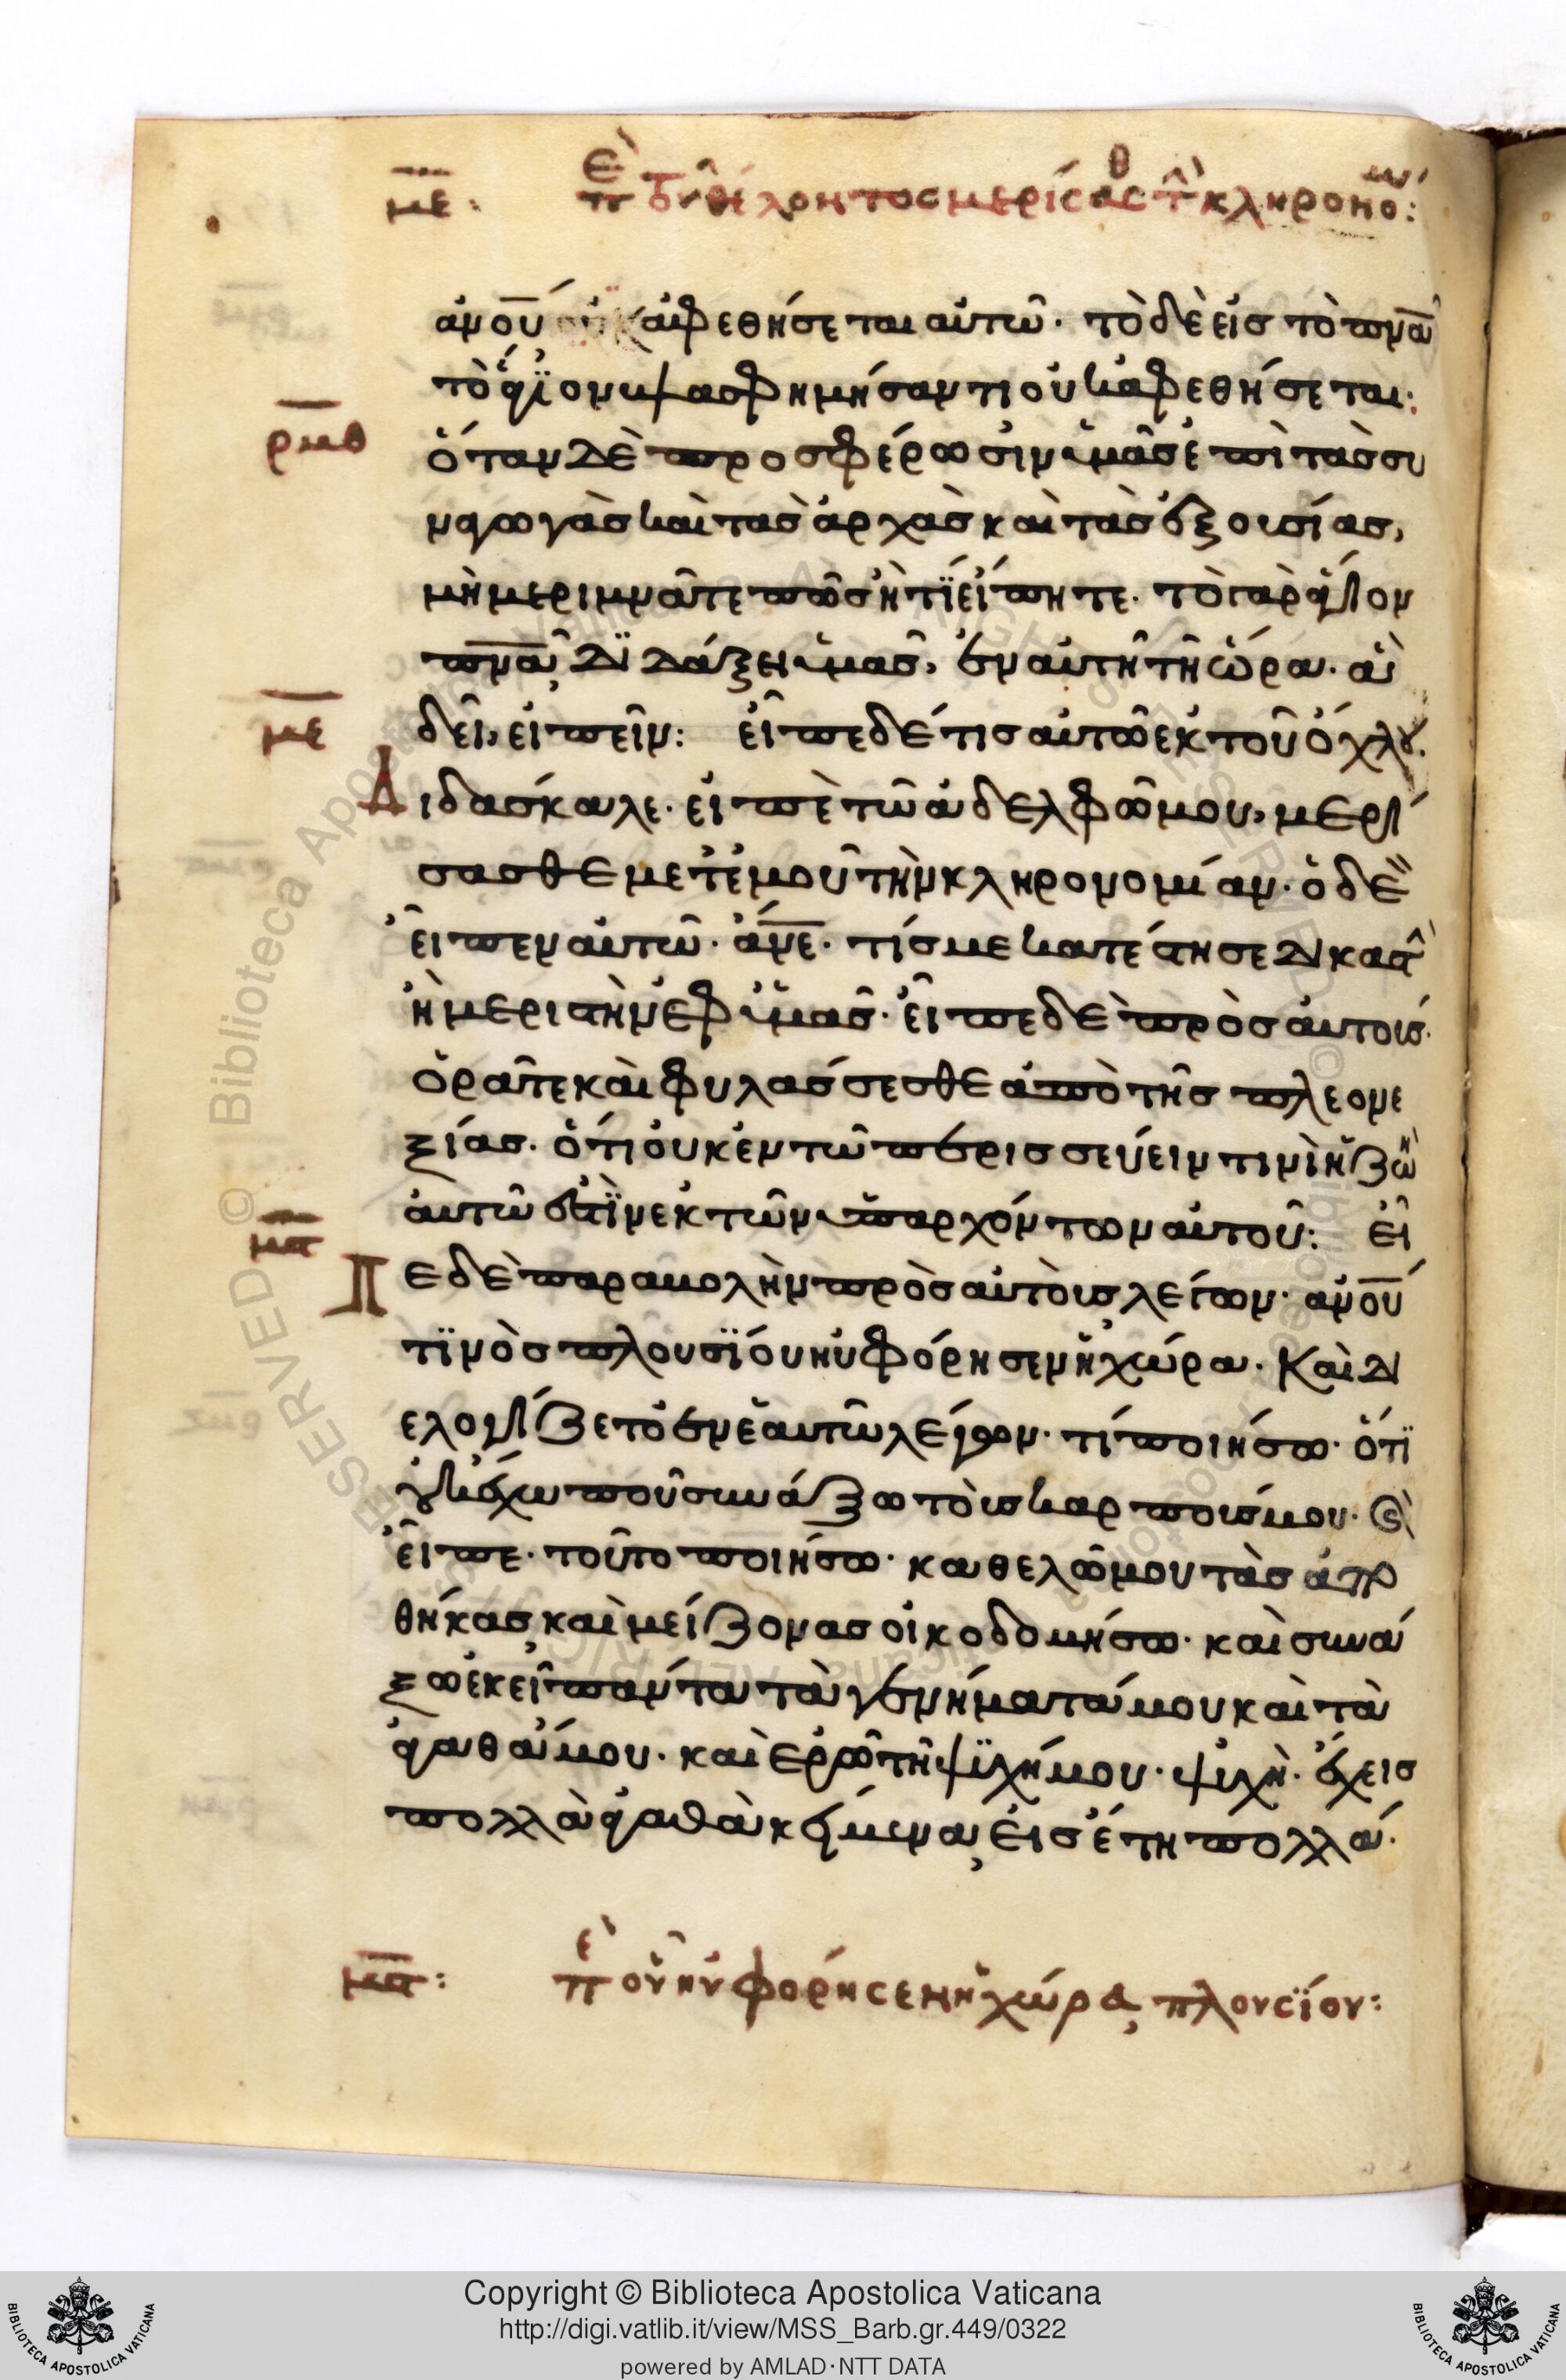 με: περὶ τοῦ θέλοντος μερίσασθ τ̂ κληρονο:
ἀν̅ο̅υ̅ οὐκ ἀφεθήσεται αὐτῶ· τὸ δὲ εἰς τὸ π̅ν̅α̅
τὸ ἅγϊον βλασφημήσαντι οὐκ ἀφεθήσεται·
ρμθ
ὅταν δὲ προσφέρωσιν ὑμᾶς ἐπὶ τὰς συ
ναγωγὰς καὶ τὰς ἀρχὰς καὶ τὰς ἐξουσίας,
μὴ μεριμνᾶτε πῶς ἢ τί εἴπητε· τὸ γὰρ ἅγιον
π̅ν̅α̅ διδάξει ὑμᾶς, ἐν αὐτῆ τῆ ὥρα· ἃ
με
δεῖ, εἰπεῖν: εἶπε δέ τις αὐτῶ ἐκ τοῦ ὄχλου.
Διδάσκαλε· εἰπὲ τῶ ἀδελφῶ μου, μερί
σασθε μετ' ἐμοῦ τὴν κληρονομίαν· ὁ δὲ
εἶπεν αὐτῶ· ἄν̅ε̅· τίς με κατέστησε δικαστ
ἢ μεριστὴν ἐφ' ὑμᾶς· εἶπε δὲ πρὸς αὐτούς·
ὁρᾶτε καὶ φυλάσσεσθε ἀπὸ τῆς πλεονε
ξίας· ὅτι οὐκ ἐν τῶ περισσεύειν τινὶ ἡ ζωὴ
αὐτῶ ἐστὶν ἐκ τῶν ὑπαρχόντων αὐτοῦ: εἶ
μς
Πε δὲ παραβολὴν πρὸς αὐτοὺς λέγων· ἀν̅ο̅υ̅
τϊνὸς πλουσϊου ηὐφόρησεν ἡ χώρα· Καὶ δι
ελογίζετο ἐν ἑαυτῶ λέγων· τί ποιήσω· ὅτϊ
οὐκ ἔχω ποῦ συνάξω τοὺς καρπούς μου· καὶ
εἶπε· τοῦτο ποιήσω· καθελῶ μου τὰς ἀπο
θήκας καὶ μείζονας οἰκοδομήσω· καὶ συνά
ξω ἐκεῖ πάντα τὰ γενήματά μου καὶ τὰ
ἀγαθά μου· καὶ ἐρῶ τῆ ψϋχῆ μου· ψυχὴ· ἔχεις
πολλὰ ἀγαθὰ κείμενα εἰς ἔτη πολλά·
μς: περὶ οὗ ηὐφόρησεν ἡ χώρα πλουσϊου:
Copyright © Biblioteca Apostolica Vaticana
http://digi.vatlib.it/view/MSS_Barb.gr.449/0322
powered by AMLAD·NTT DATA
BIBLIOTECA APOSTOLICA VATICANA
BIBLIOTECA APOSTOLICA VATICANA